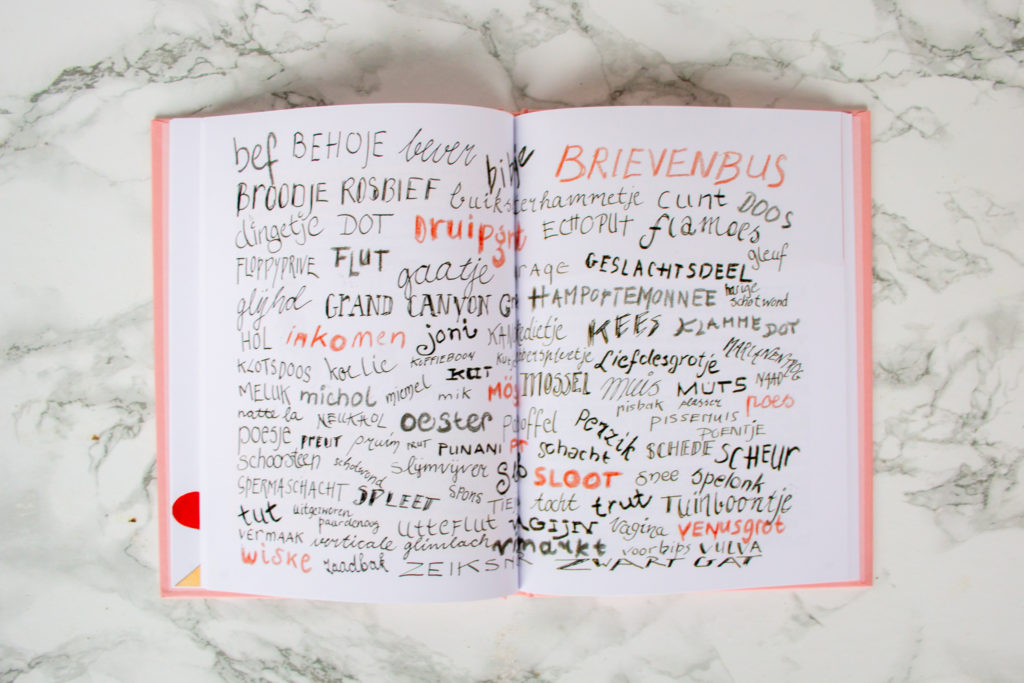 bef BEHOJE bever BRIEVENBUS
BROODJE ROSBIEF buiksterhammetje cunt DOOS
dingetje DOT Druipgrot ECHOPUT flamoes
FLOPPYDRIVE FLUT gaatje GESLACHTSDEEL gleuf
glijhd GRAND CANYON HAMPORTEMONNEE harige schotwond
HOL inkomen joni KEES KLAMME DOT
KLOTSDOOS koelie KOFFIEBOON KUT Liefdesgrotje
MELUK michol miemel mik MOSSEL muis MUTS NAAD poes
natte la NEUKHOL oester Perzik pisbak plasser PISSEMUIS POENTJE
poesje PREUT pruim PRUT PUNANI schacht SCHEDE SCHEUR
schoorsteen schotwond slijmvijver SLOOT snee spelonk
SPERMASCHACHT SPLEET SPONS tocht trut Tuinboontje
tut uitgeworen paardenoog UTTEFLUT VAGIJN Vagina VENUSgrot
VERMAAK verticale glimlach voorbips VULVA
wiske zaadbak ZWART GAT